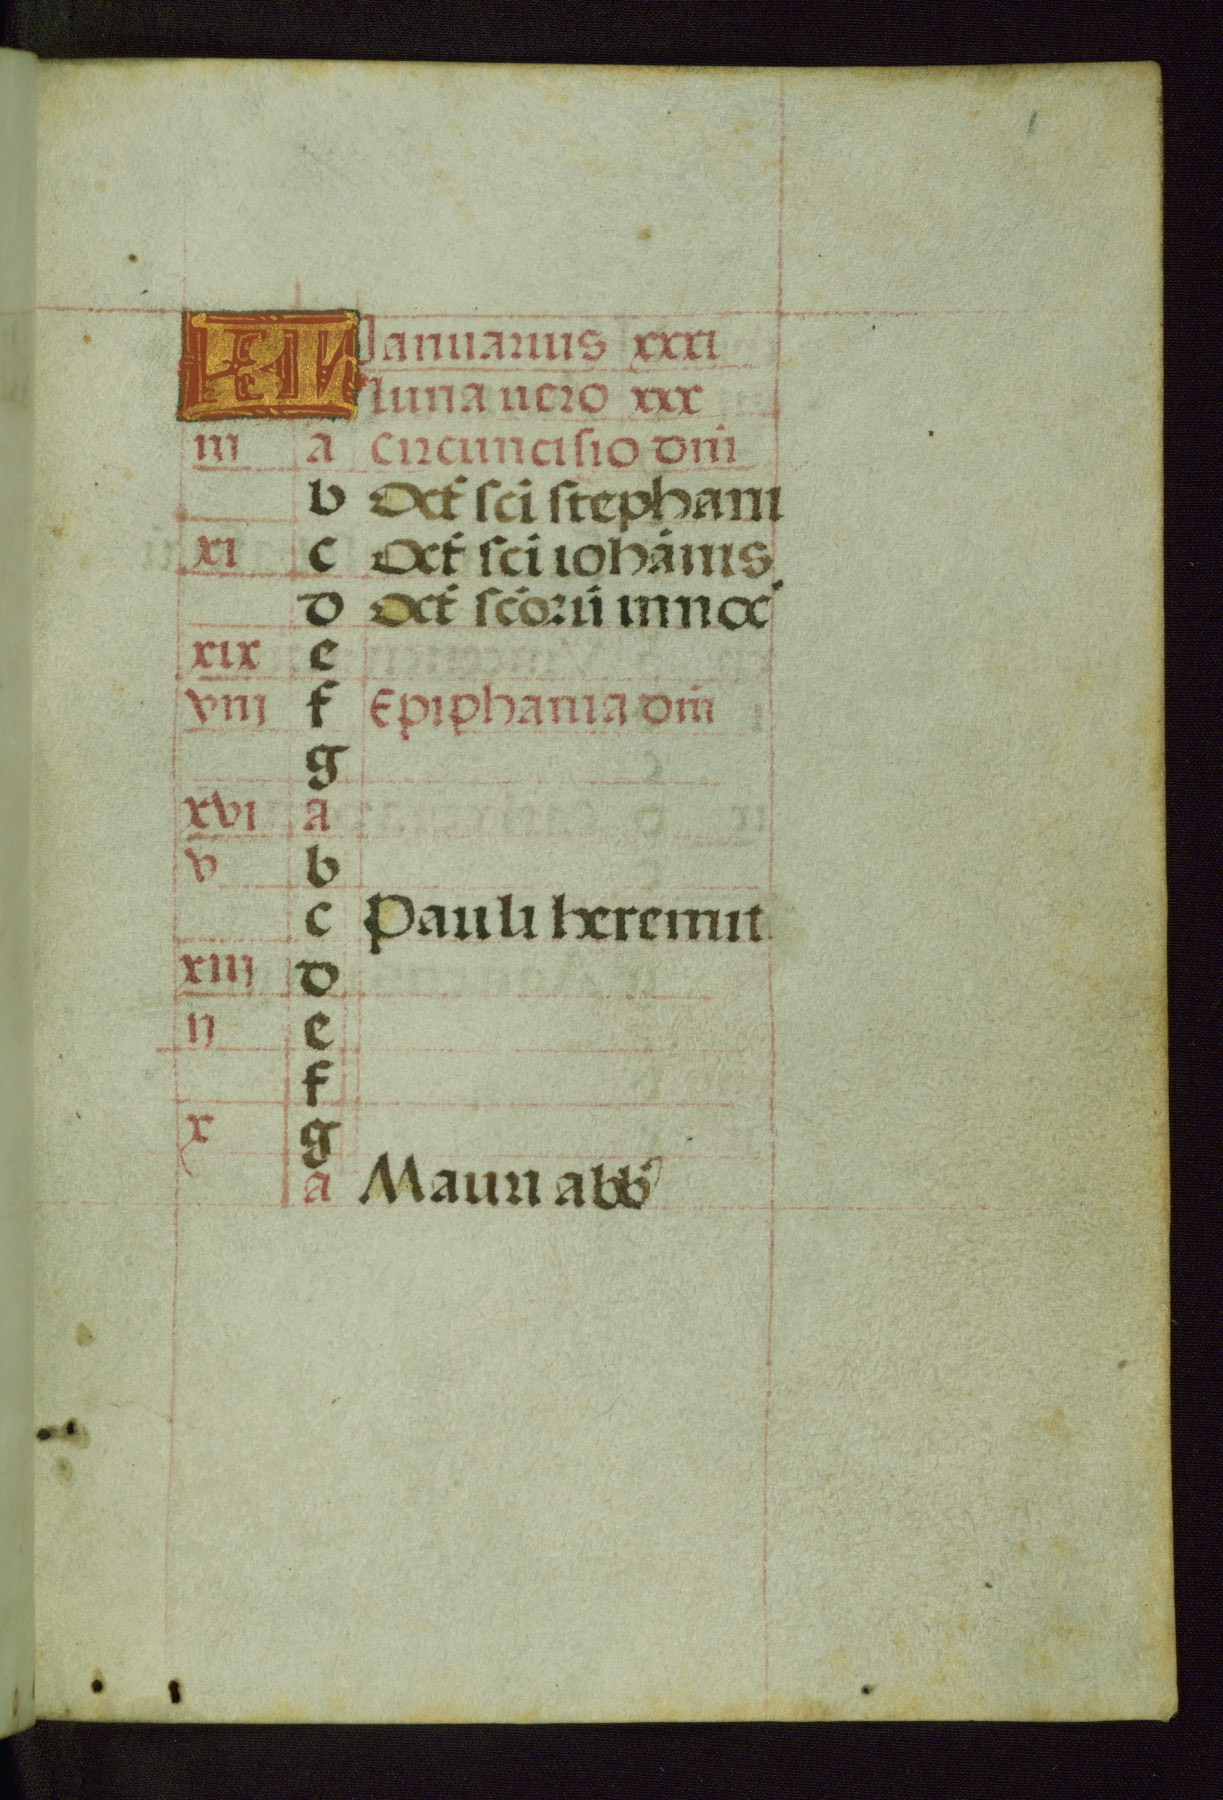 KL Januarius xxxi
luna uero xxx
iij a Circuncisio dñi
b Oct̃ sci stephani
xi c Oct̃ sci iohãnis
d Oct̃ scõrũ innoc̃
xix e
viij f Epiphania dñi
g
xvi a
v b
c Pauli heremit
xiij d
ij e
f
x g
a Mauri abb̃